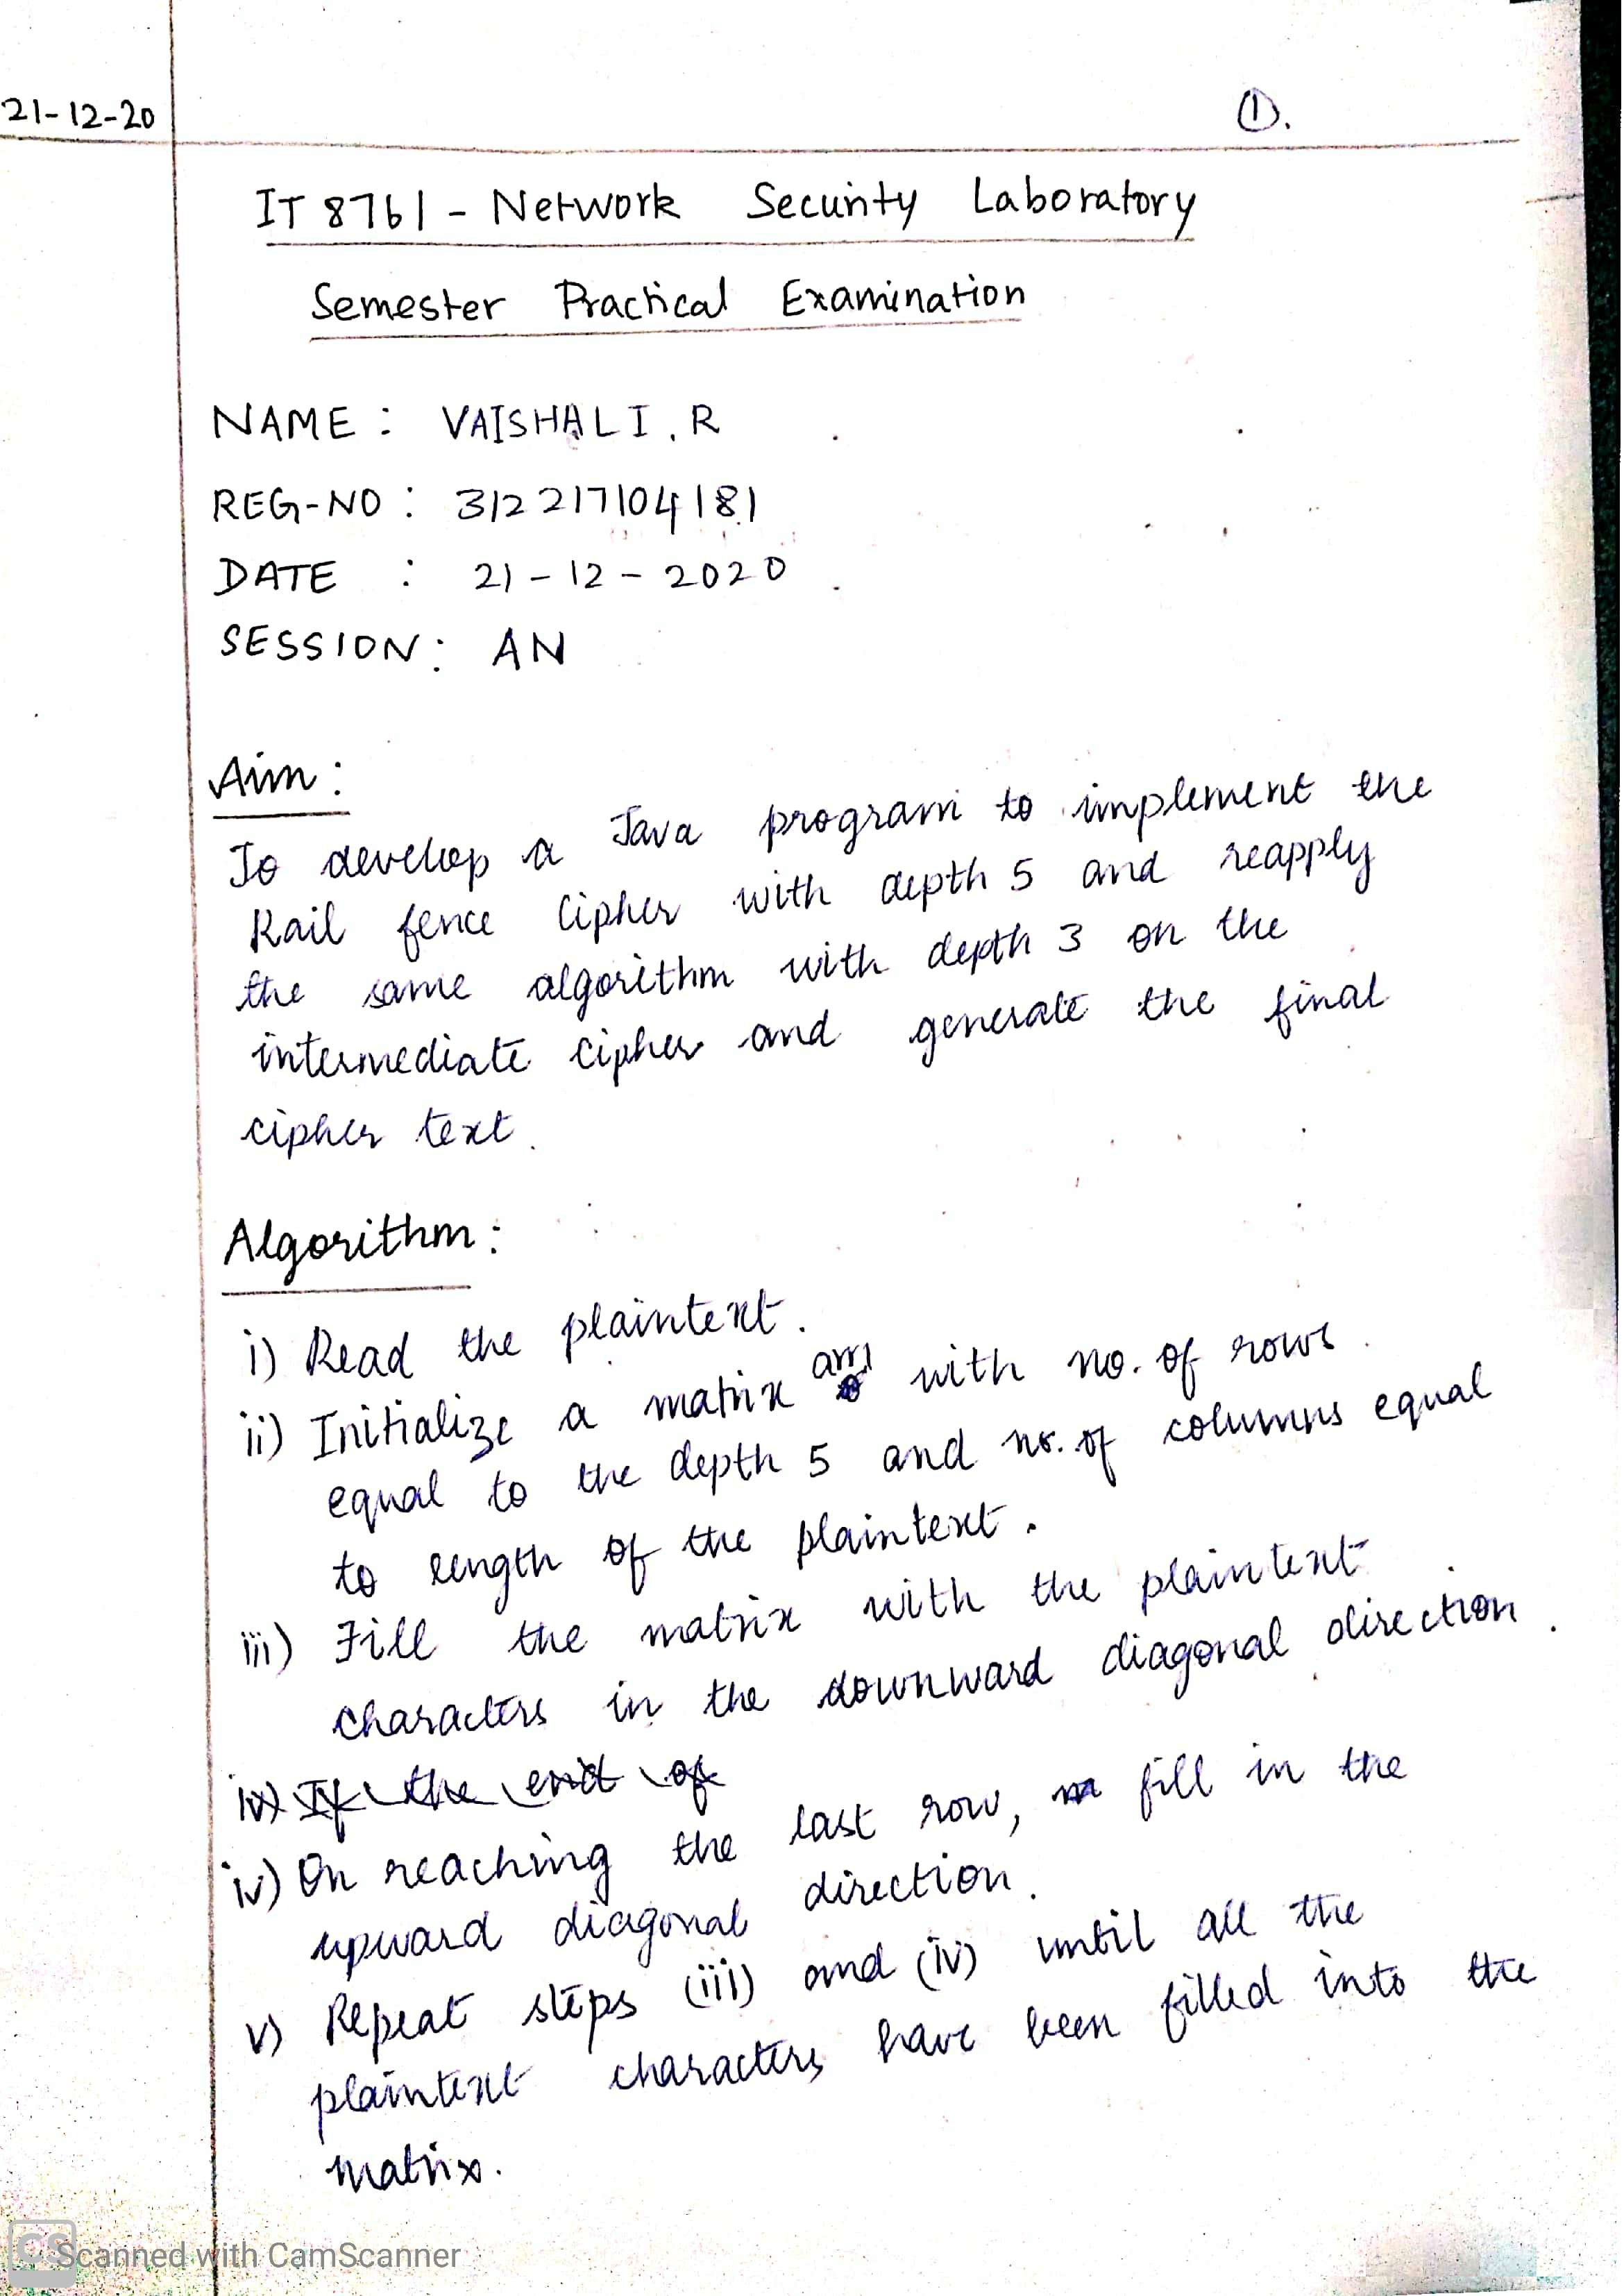 21-12-20
①.
IT 8761 - Network Security Laboratory
Semester Practical Examination
NAME : VAISHALI. R
REG-NO : 312217104181
DATE : 21-12-2020
SESSION: AN
Aim :
To develop a Java program to implement the
Rail fence Cipher with depth 5 and reapply
the same algorithm with depth 3 on the
intermediate cipher and generate the final
cipher text.
Algorithm :
i) Read the plaintext.
ii) Initialize a matrix arr1 with no. of rows
equal to the depth 5 and no. of columns equal
to length of the plaintext.
iii) Fill the matrix with the plaintext
characters in the downward diagonal direction.
iv) If the end of
iv) On reaching the last row, fill in the
upward diagonal direction.
v) Repeat steps (iii) and (iv) until all the
plaintext characters have been filled into the
matrix.
CS Scanned with CamScanner